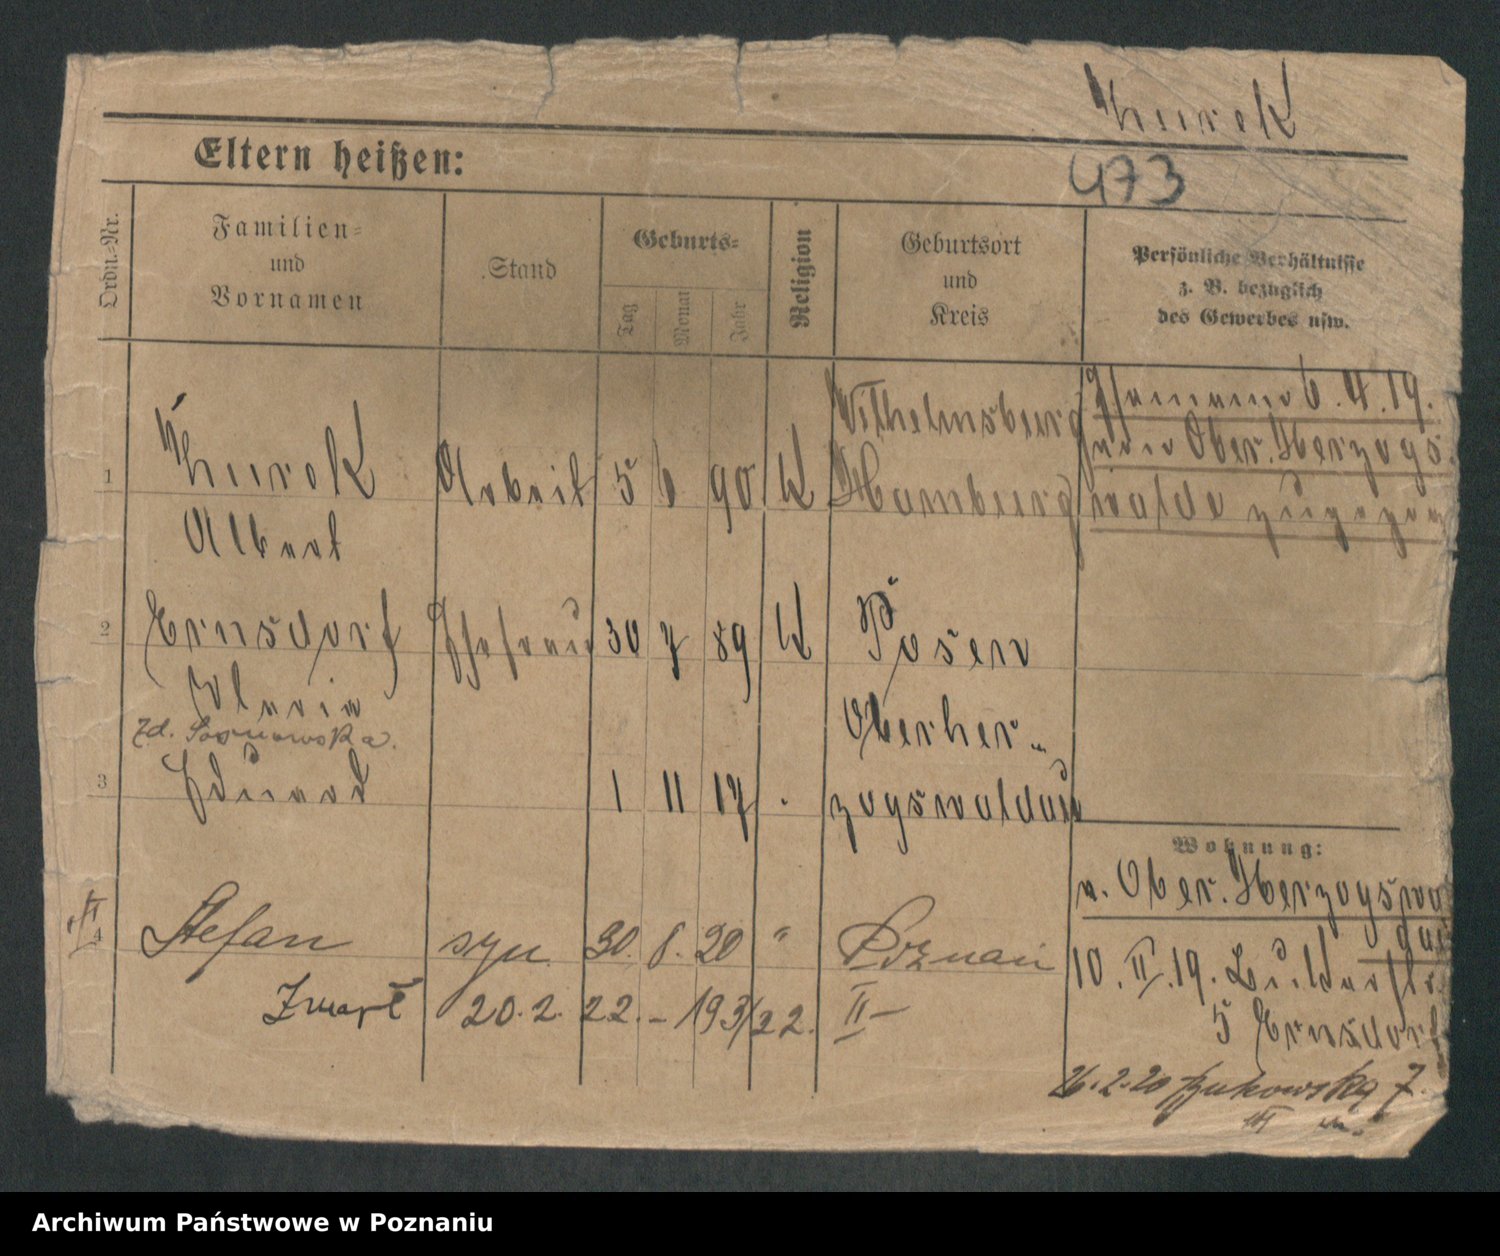 Żurek
473
Eltern heißen:
Ordn.-Nr.
Familien- und Vornamen
Stand
Geburts-
Tag
Monat
Jahr
Religion
Geburtsort und Kreis
Persönliche Verhältnisse z. B. bezüglich des Gewerbes usw.
Wilhelmsberg 6.4.19.
von Ober. Herzogs
1 Żurek Arbeit 5 6 90 K Hamburg walde zugezog
Albert
2 Ernsdorf Ehefrau 30 7 89 K Posen
Maria
Oberher-
3 Eduard 1 11 17 zogswaldau
Wohnung:
v. Ober. Herzogswal
dau
4 Stefan syn 30. 8. 20 " Poznań
10. II. 19.
Zmarł 20.2.22. - 193/22. II-
5 Ernsdorf
26.2.20 7.
III
Archiwum Państwowe w Poznaniu